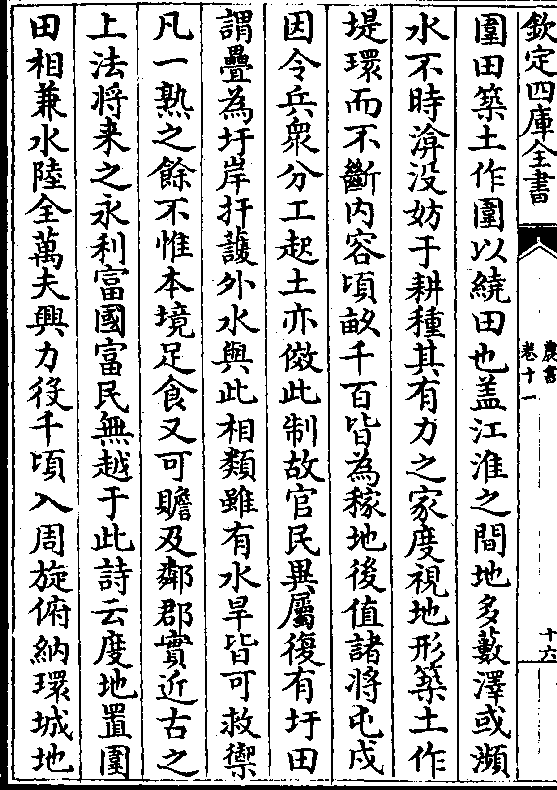 欽定四庫全書
農書
卷十一
十六
圍田築土作圍以繞田也盖江淮之間地多藪澤或瀕
水不時渰没妨于耕種其有力之家度視地形築土作
堤環而不斷内容頃畝千百皆為稼地後值諸將屯戍
因令兵衆分工起土亦倣此制故官民異屬復有圩田
謂疊為圩岸扞䕶外水與此相類雖有水旱皆可救禦
凡一熟之餘不惟本境足食又可贍及鄰郡實近古之
上法将来之永利富國富民無越于此詩云度地置圍
田相兼水陸全萬夫興力役千頃入周旋俯納環城地